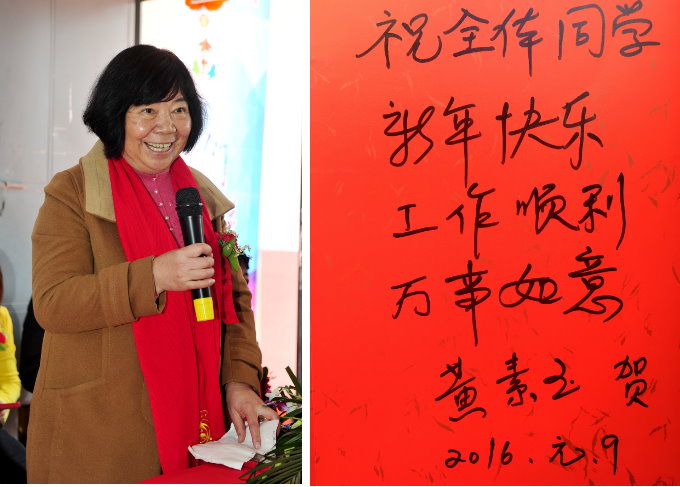 祝全体同学
新年快乐
工作顺利
万事如意
黄素玉 贺
2016.元.9